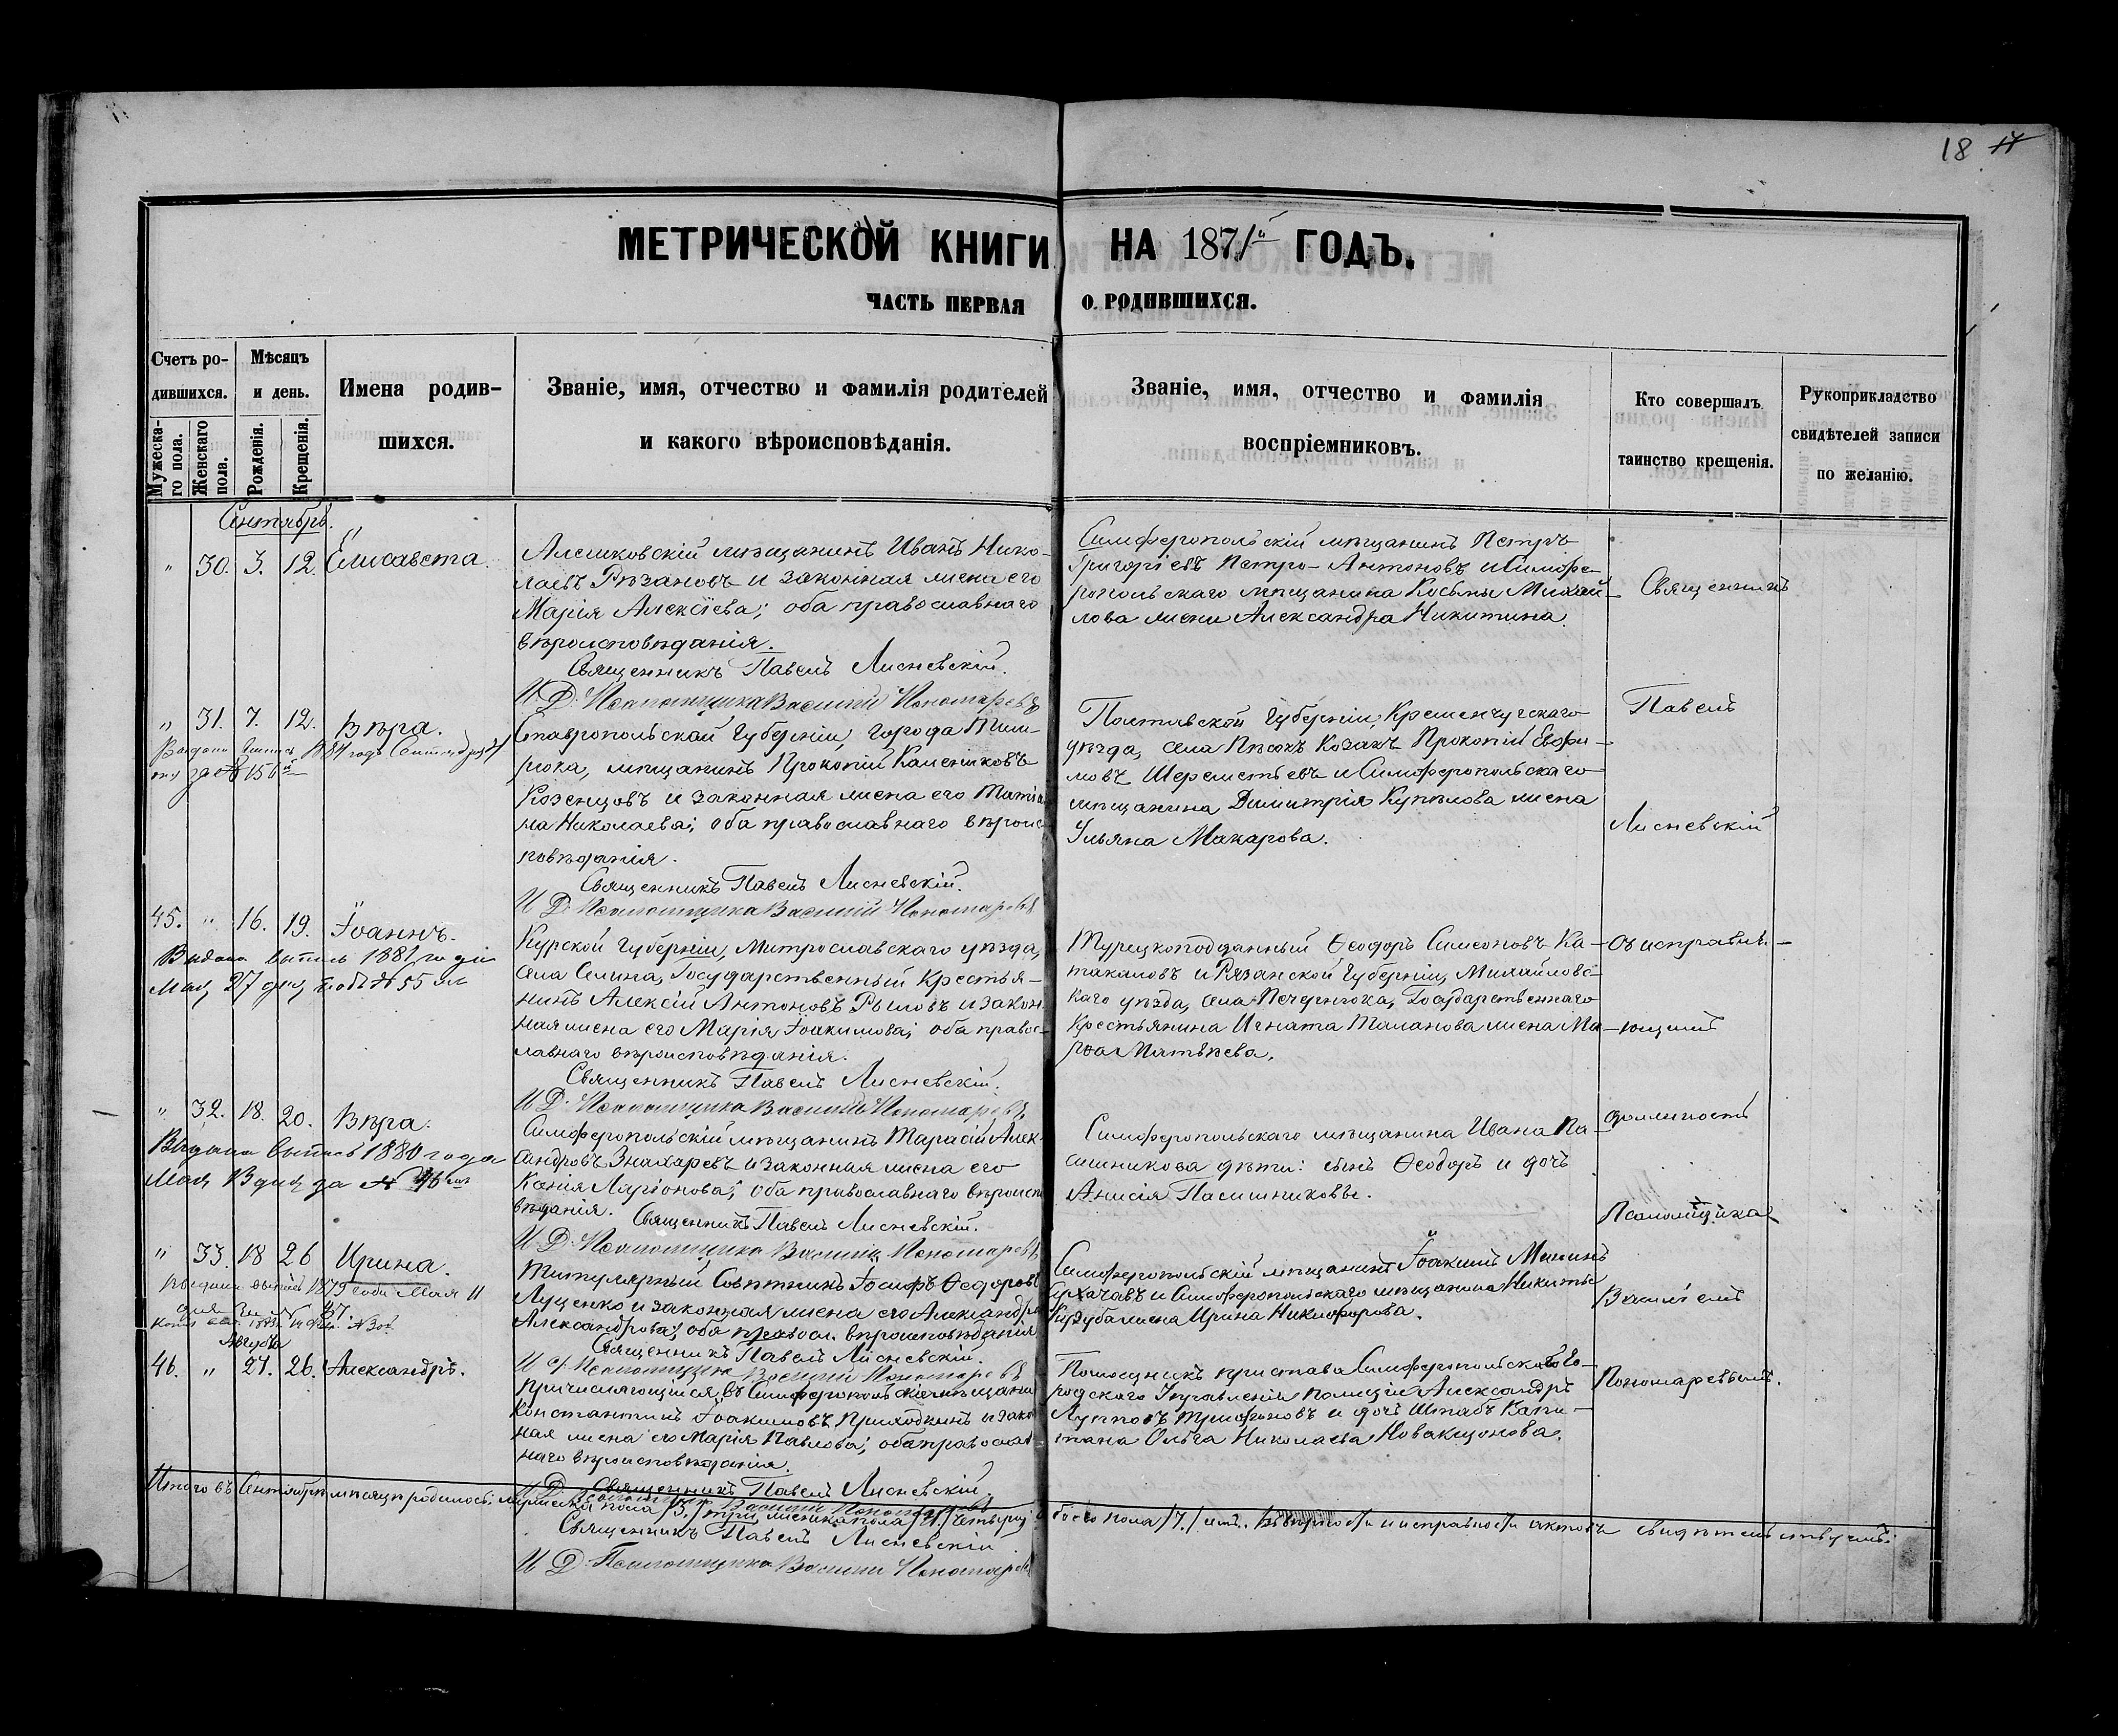 18 17
МЕТРИЧЕСКОЙ КНИГИ НА 1871й ГОДЪ.
ЧАСТЬ ПЕРВАЯ О РОДИВШИХСЯ.
Счетъ родившихся.
Мужескаго пола.
Женскаго пола.
Мѣсяцъ и день.
Рожденія.
Крещенія.
Имена родившихся.
Званіе, имя, отчество и фамилія родителей
и какого вѣроисповѣданія.
Званіе, имя, отчество и фамилія
воспріемниковъ.
Кто совершалъ
таинство крещенія.
Рукоприкладство
свидѣтелей записи
по желанію.
Сентябрь.
" 30. 3. 12. Елисавета.
Алешковскій мѣщанинъ Иванъ Нико-
лаевъ Рѣзановъ и законная жена его
Марія Алексіева; оба православнаго
вѣроисповѣданія.
Священникъ Павелъ Лисневскій.
И. Д. Псаломщика Василій Пономаревъ
Симферопольскій мѣщанинъ Петръ
Григоріевъ Петро-Антоновъ и Симфе-
ропольскаго мѣщанина Косьмы Михай-
лова жена Александра Никитина.
Священникъ
" 31. 7. 12. Вѣра.
Ставропольской Губерніи, города Тем-
рюка, мѣщанинъ Прокопій
Козенцовъ и законная жена его Татіа
на Николаева; оба православнаго вѣроис-
повѣданія.
Священникъ Павелъ Лисневскій.
И. Д. Псаломщика Василій Пономаревъ
Полтавской Губерніи, Кременчугскаго
уѣзда, села Пѣсокъ Козакъ Прокопій Евфи-
мовъ Шереметьевъ и Симферопольскаго
мѣщанина Димитрія жена
Ульяна Макарова.
Павелъ
Лисневскій
45. " 16. 19. Іоаннъ.
Выдана выпись 1881 года
Мая 27 дня подъ № 55
Курской Губерніи, Митрославскаго уѣзда,
села Селина, Государственный Крестья-
нинъ Алексій Антоновъ Рыловъ и закон-
ная жена его Марія Іоакимова; оба правос-
лавнаго вѣроисповѣданія.
Священникъ Павелъ Лисневскій.
И. Д. Псаломщика Василій Пономаревъ
Турецкоподданный Ѳеодоръ Симеоновъ Ка-
такаловъ и Рязанской Губерніи, Михайловс-
каго уѣзда, села Государственнаго
Крестьянина Игната Таланова жена Ма-
рѳа Матвѣева.
Съ исправля-
ющимъ
" 32. 18. 20. Вѣра.
Выдана выпись 1880 года
Мая 3 дня за № 46
Симферопольскій мѣщанинъ Тарасій Алек-
сандровъ Знахаревъ и законная жена его
Ксенія Ларіонова; оба православнаго вѣроиспо
вѣданія. Священникъ Павелъ Лисневскій.
И. Д. Псаломщика Василій Пономаревъ
Симферопольскаго мѣщанина Ивана Па-
сишникова дѣти: сынъ Ѳеодоръ и дочь
Анисія Пасишниковы.
должность
Псаломщика
" 33. 18 26 Ирина.
Выдана выпись 1879 года Мая 11
дня
Титулярный Совѣтникъ Іосифъ Ѳеодоровъ
Луценко и законная жена его Александра
Александрова; оба правосл. вѣроисповѣданія
Священникъ Павелъ Лисневскій.
И. д. Псаломщика Василій Пономаревъ
Симферопольскій мѣщанинъ Іоакимъ
и Симферопольскаго мѣщанина Никиты
жена Ирина Никифорова.
Василіемъ
Августа
46. " 21. 26. Александръ.
Причисляющійся въ Симферопольскіе мѣщане
Константинъ Іоакимовъ Приходкинъ и закон
ная жена его Марія Павлова; оба православ
наго вѣроисповѣданія.
Священникъ Павелъ Лисневскій.
И. Д. Псаломщика Василій Пономаревъ
Помощникъ пристава Симферопольскаго Го-
родскаго Управленія полиціи Александръ
Трифоновъ и дочь Штабъ Капи-
тана Ольга Николаева
Пономаревымъ.
Итого въ Сентябрѣ мѣсяцѣ родилось: мужеска пола /3./ три, женска пола /4./ четыре, обоего пола /7./ семь. Въ вѣрности и исправности актовъ свидѣтельствуемъ:
Священникъ Павелъ Лисневскій
И. Д. Псаломщика Василій Пономаревъ